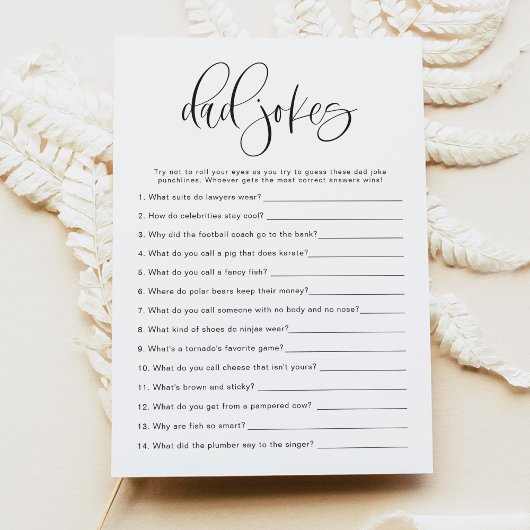 dad jokes
Try not to roll your eyes as you try to guess these dad joke
punchlines. Whoever gets the most correct answers wins!
1. What suits do lawyers wear?
2. How do celebrities stay cool?
3. Why did the football coach go to the bank?
4. What do you call a pig that does karate?
5. What do you call a fancy fish?
6. Where do polar bears keep their money?
7. What do you call someone with no body and no nose?
8. What kind of shoes do ninjas wear?
9. What's a tornado's favorite game?
10. What do you call cheese that isn't yours?
11. What's brown and sticky?
12. What do you get from a pampered cow?
13. Why are fish so smart?
14. What did the plumber say to the singer?